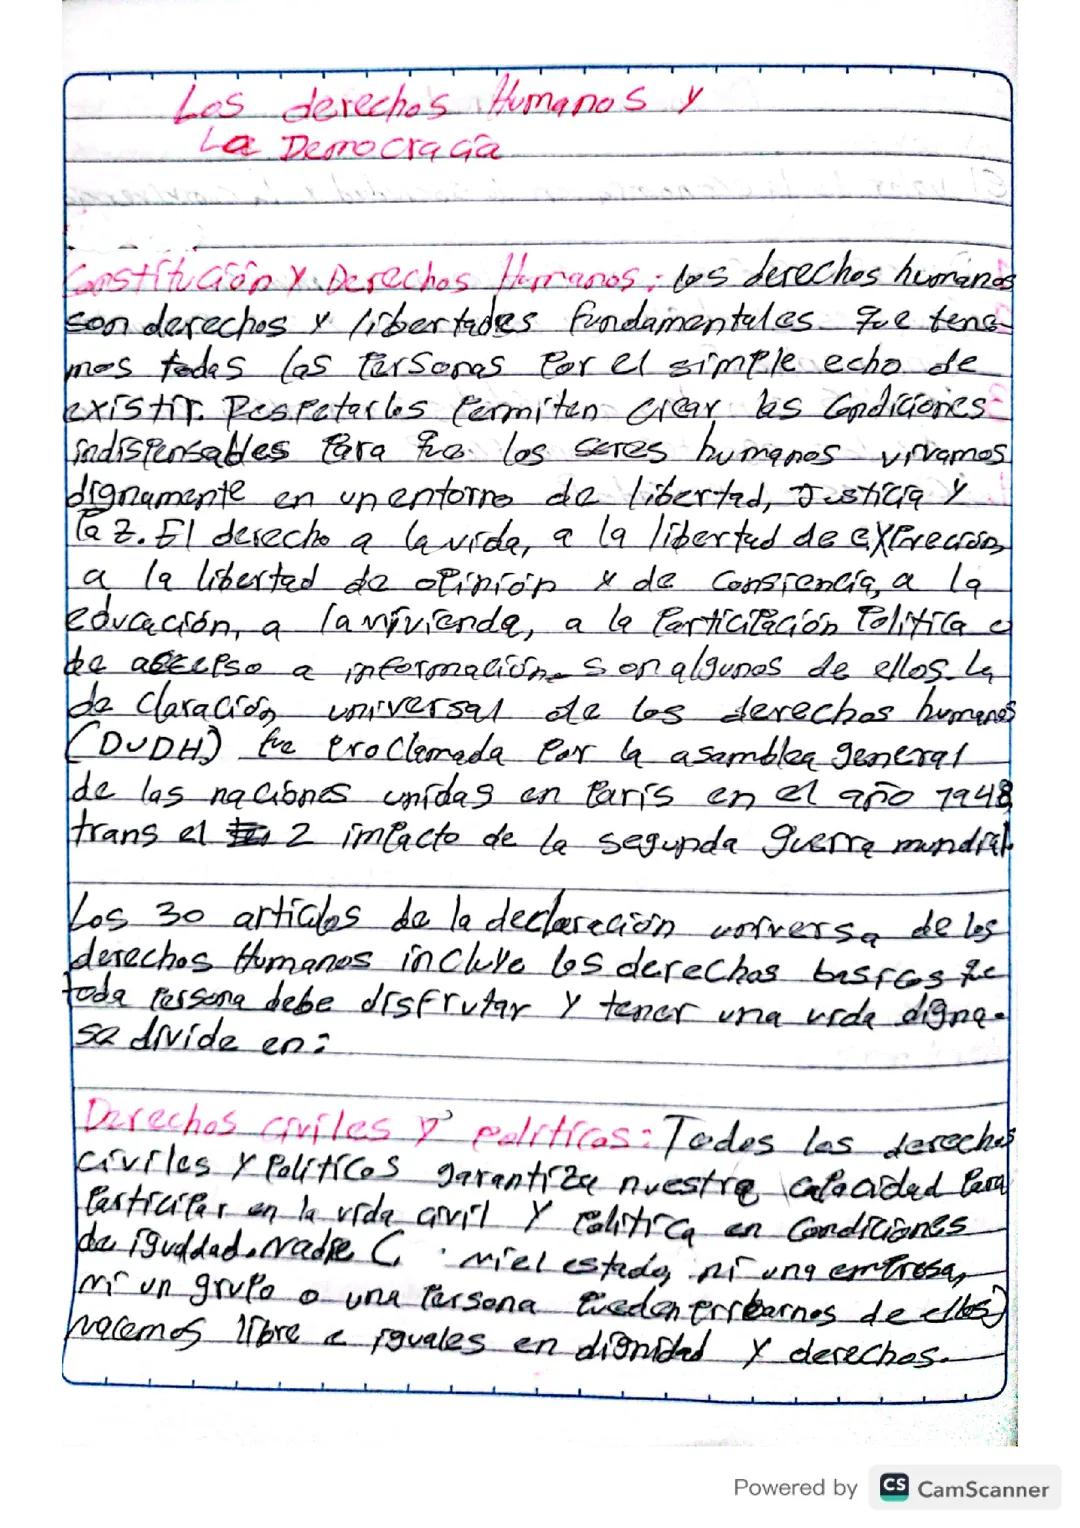 Los derechos Humanos y
La Democracia
Constitución y Derechos Humanos: los derechos humanos
son derechos y libertades fundamentales que tene-
mos todas las Personas Por el simple echo de
existir. Respetarlos Permiten crear las Condiciones
indispensables Para que los seres humanos vivamos
dignamente en un entorno de libertad, Justicia y
Paz. El derecho a la vida, a la libertad de exPreción,
a la libertad de oPinión y de Consiencia, a la
educación, a la vivienda, a la ParticiPación Política o
de a información son algunos de ellos. La
de claración universal de los derechos humanos
(DUDH) fue Proclamada Por la asamblea general
de las naciones unidas en París en el año 1948
trans el 2 imPacto de la segunda guerra mundial.
Los 30 artículos de la declaración universa de los
derechos Humanos incluye los derechos basicos que
toda Persona debe disfrutar y tener una vida digna.
se divide en:
Derechos civiles y politicos: Todos los derechos
civiles y Políticos garantiza nuestra caPacidad Para
ParticiPar en la vida civil y Política en Condiciones
de igualdad. Nadie ni el estado, ni una emPresa,
ni un gruPo o una Persona Pueden de ellos)
nacemos libre e iguales en dignidad y derechos.
Powered by CS CamScanner